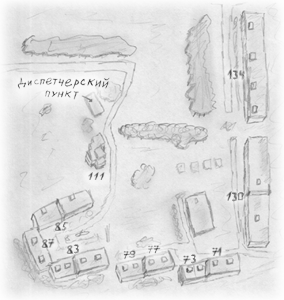 Диспетчерский
пункт
134
111
130
85
87
83
79
77
73
71